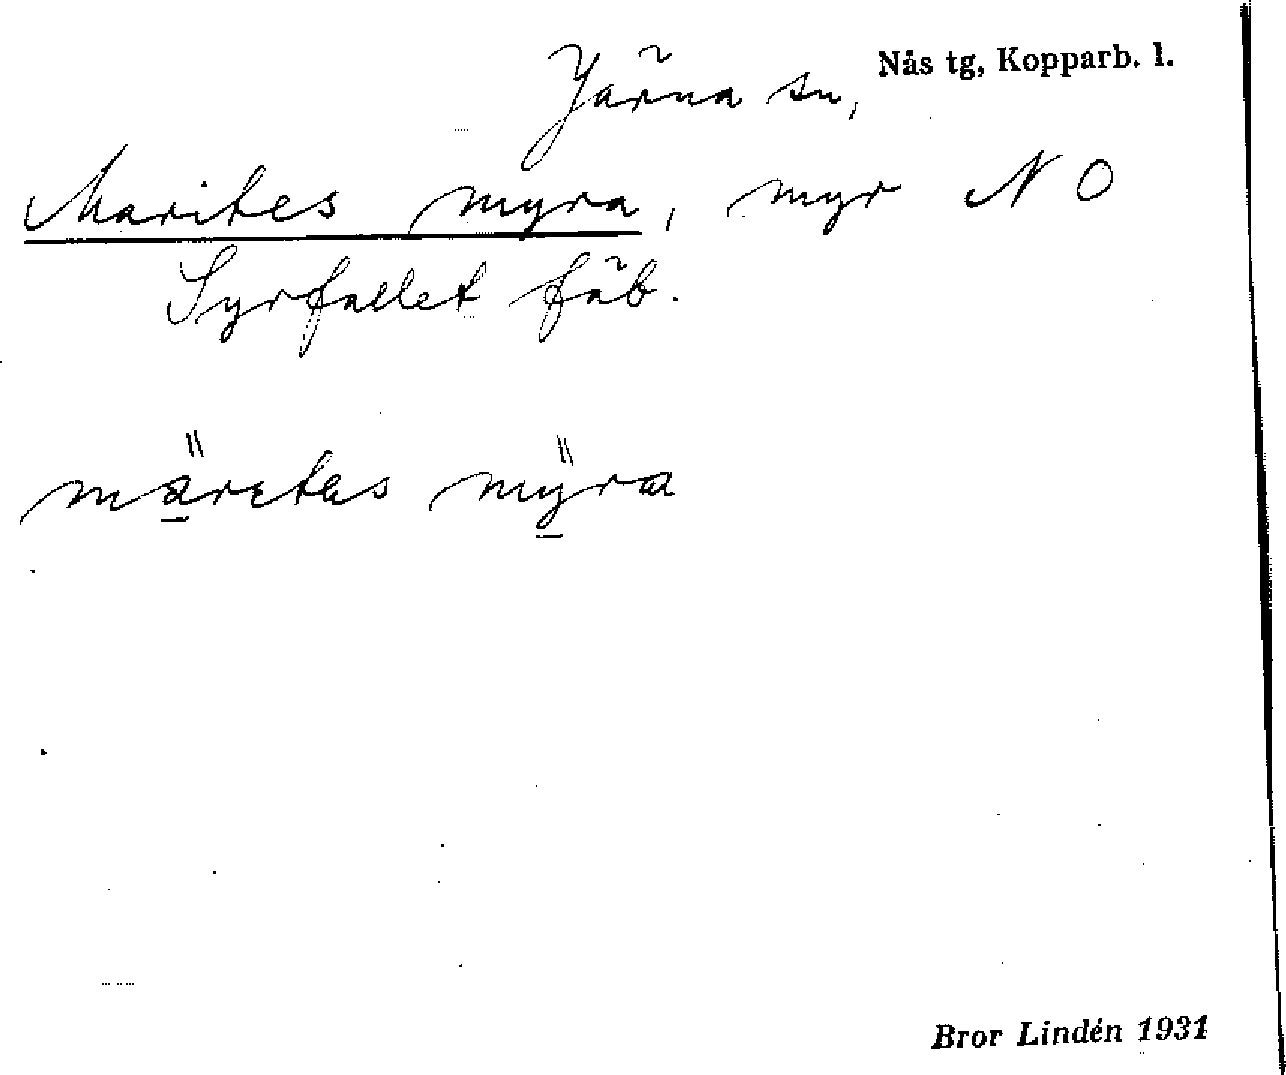 Järna sn, Nås tg, Kopparb. l.
Marites myra, myr N O
Syrfallet fäb.
märetas mÿra
Bror Lindén 1931